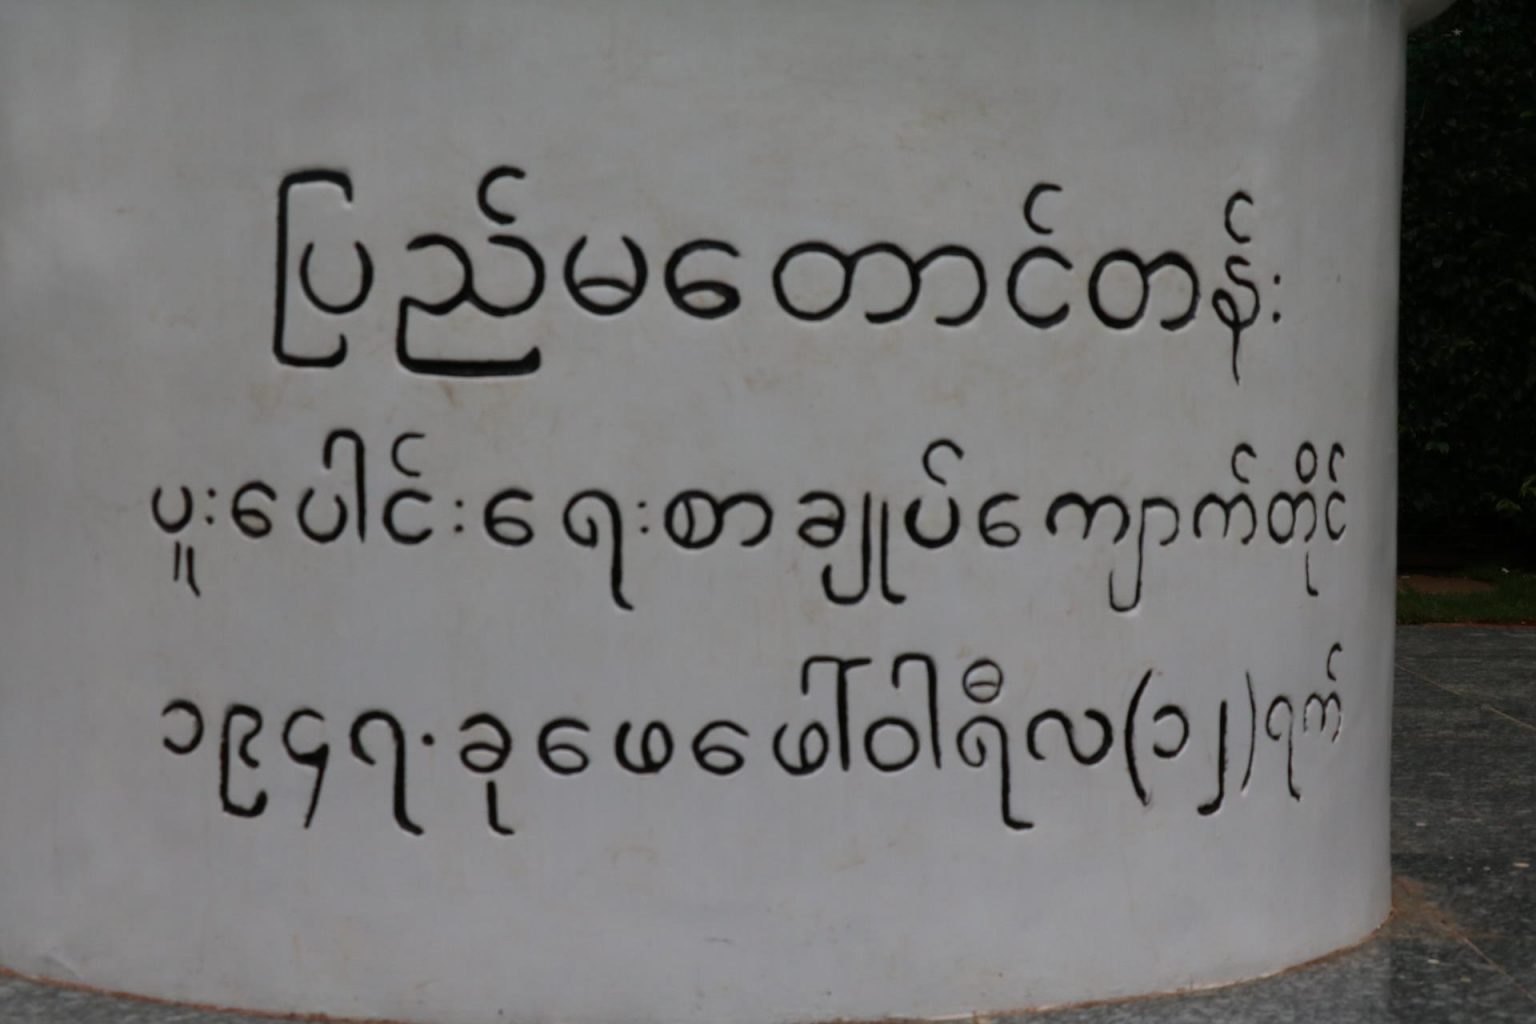 ပြည်မတောင်တန်း
ပူးပေါင်းရေးစာချုပ်ကျောက်တိုင်
၁၉၄၇.ခုဖေဖေါ်ဝါရီလ(၁၂)ရက်